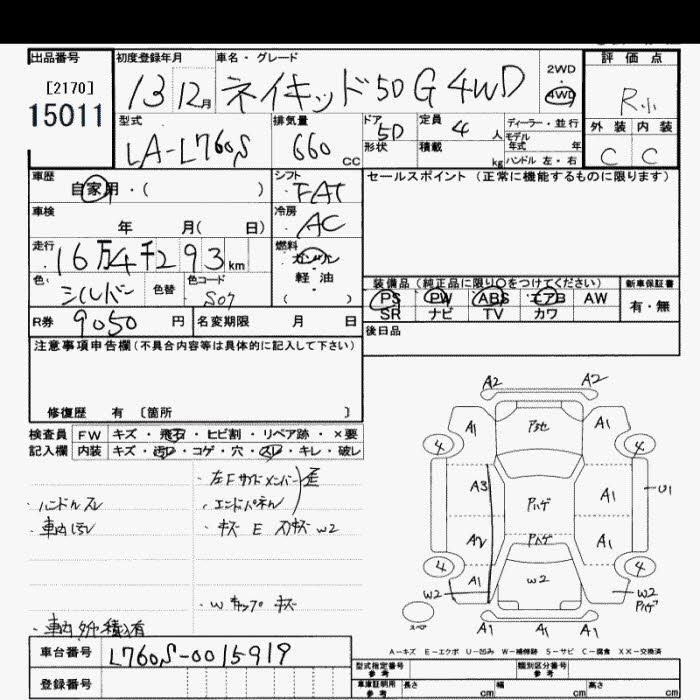 出品番号
[2170]
15011
初度登録年月
13 12月
車名・グレード
ネイキッド50G 4WD
2WD
4WD
評価点
R小
外装 内装
C C
型式
LA-L760S
排気量
660 cc
ドア
5D
形状
定員
4 人
積載
kg
ディーラー・並行
モデル
年式 年
ハンドル 左・右
車歴
自家用・( )
シフト
FAT
車検
年 月( 日)
冷房
AC
走行
16万4千293 km
燃料
ガソリン
軽油
( )
色
シルバー
色替
色コード
S07
R券
9050 円
名変期限 月 日
セールスポイント(正常に機能するものに限ります)
装備品(純正品に限り○をつけてください)
PS PW ABS エアB AW
SR ナビ TV カワ
新車保証書
有・無
後日品
注意事項申告欄(不具合内容等は具体的に記入して下さい)
修復歴 有 〔箇所 〕
検査員 FW キズ・飛石・ヒビ割・リペア跡・×要
記入欄 内装 キズ・汚レ・コゲ・穴・スレ・キレ・破レ
・左Fサイドメンバー
・エンドパネル
・ハンドルスレ
・車内汚レ
・キズ E スリキズ W2
・Wキャップ キズ
・車内 タイヤ積込有
A2 A2
A1 Pハゲ A1
4 4
A3 Pハゲ A1 U1
A2 Pハゲ A1
4 4
W2 A1 W2 W2
Pハゲ
スペア
A1 A1 A1
A-キズ E-エクボ U-凹み W-補修跡 S-サビ C-腐食 XX-交換済
車台番号
L760S-0015919
登録番号
型式指定番号
参考
類別区分番号
参考
車庫証明用
参考
長さ cm
幅 cm
高さ cm